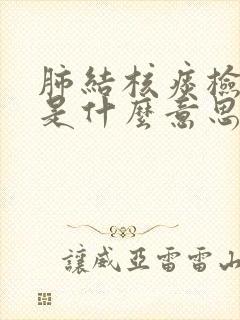 肺結核痰檢
是什麼意思
讓威亞雷雷山